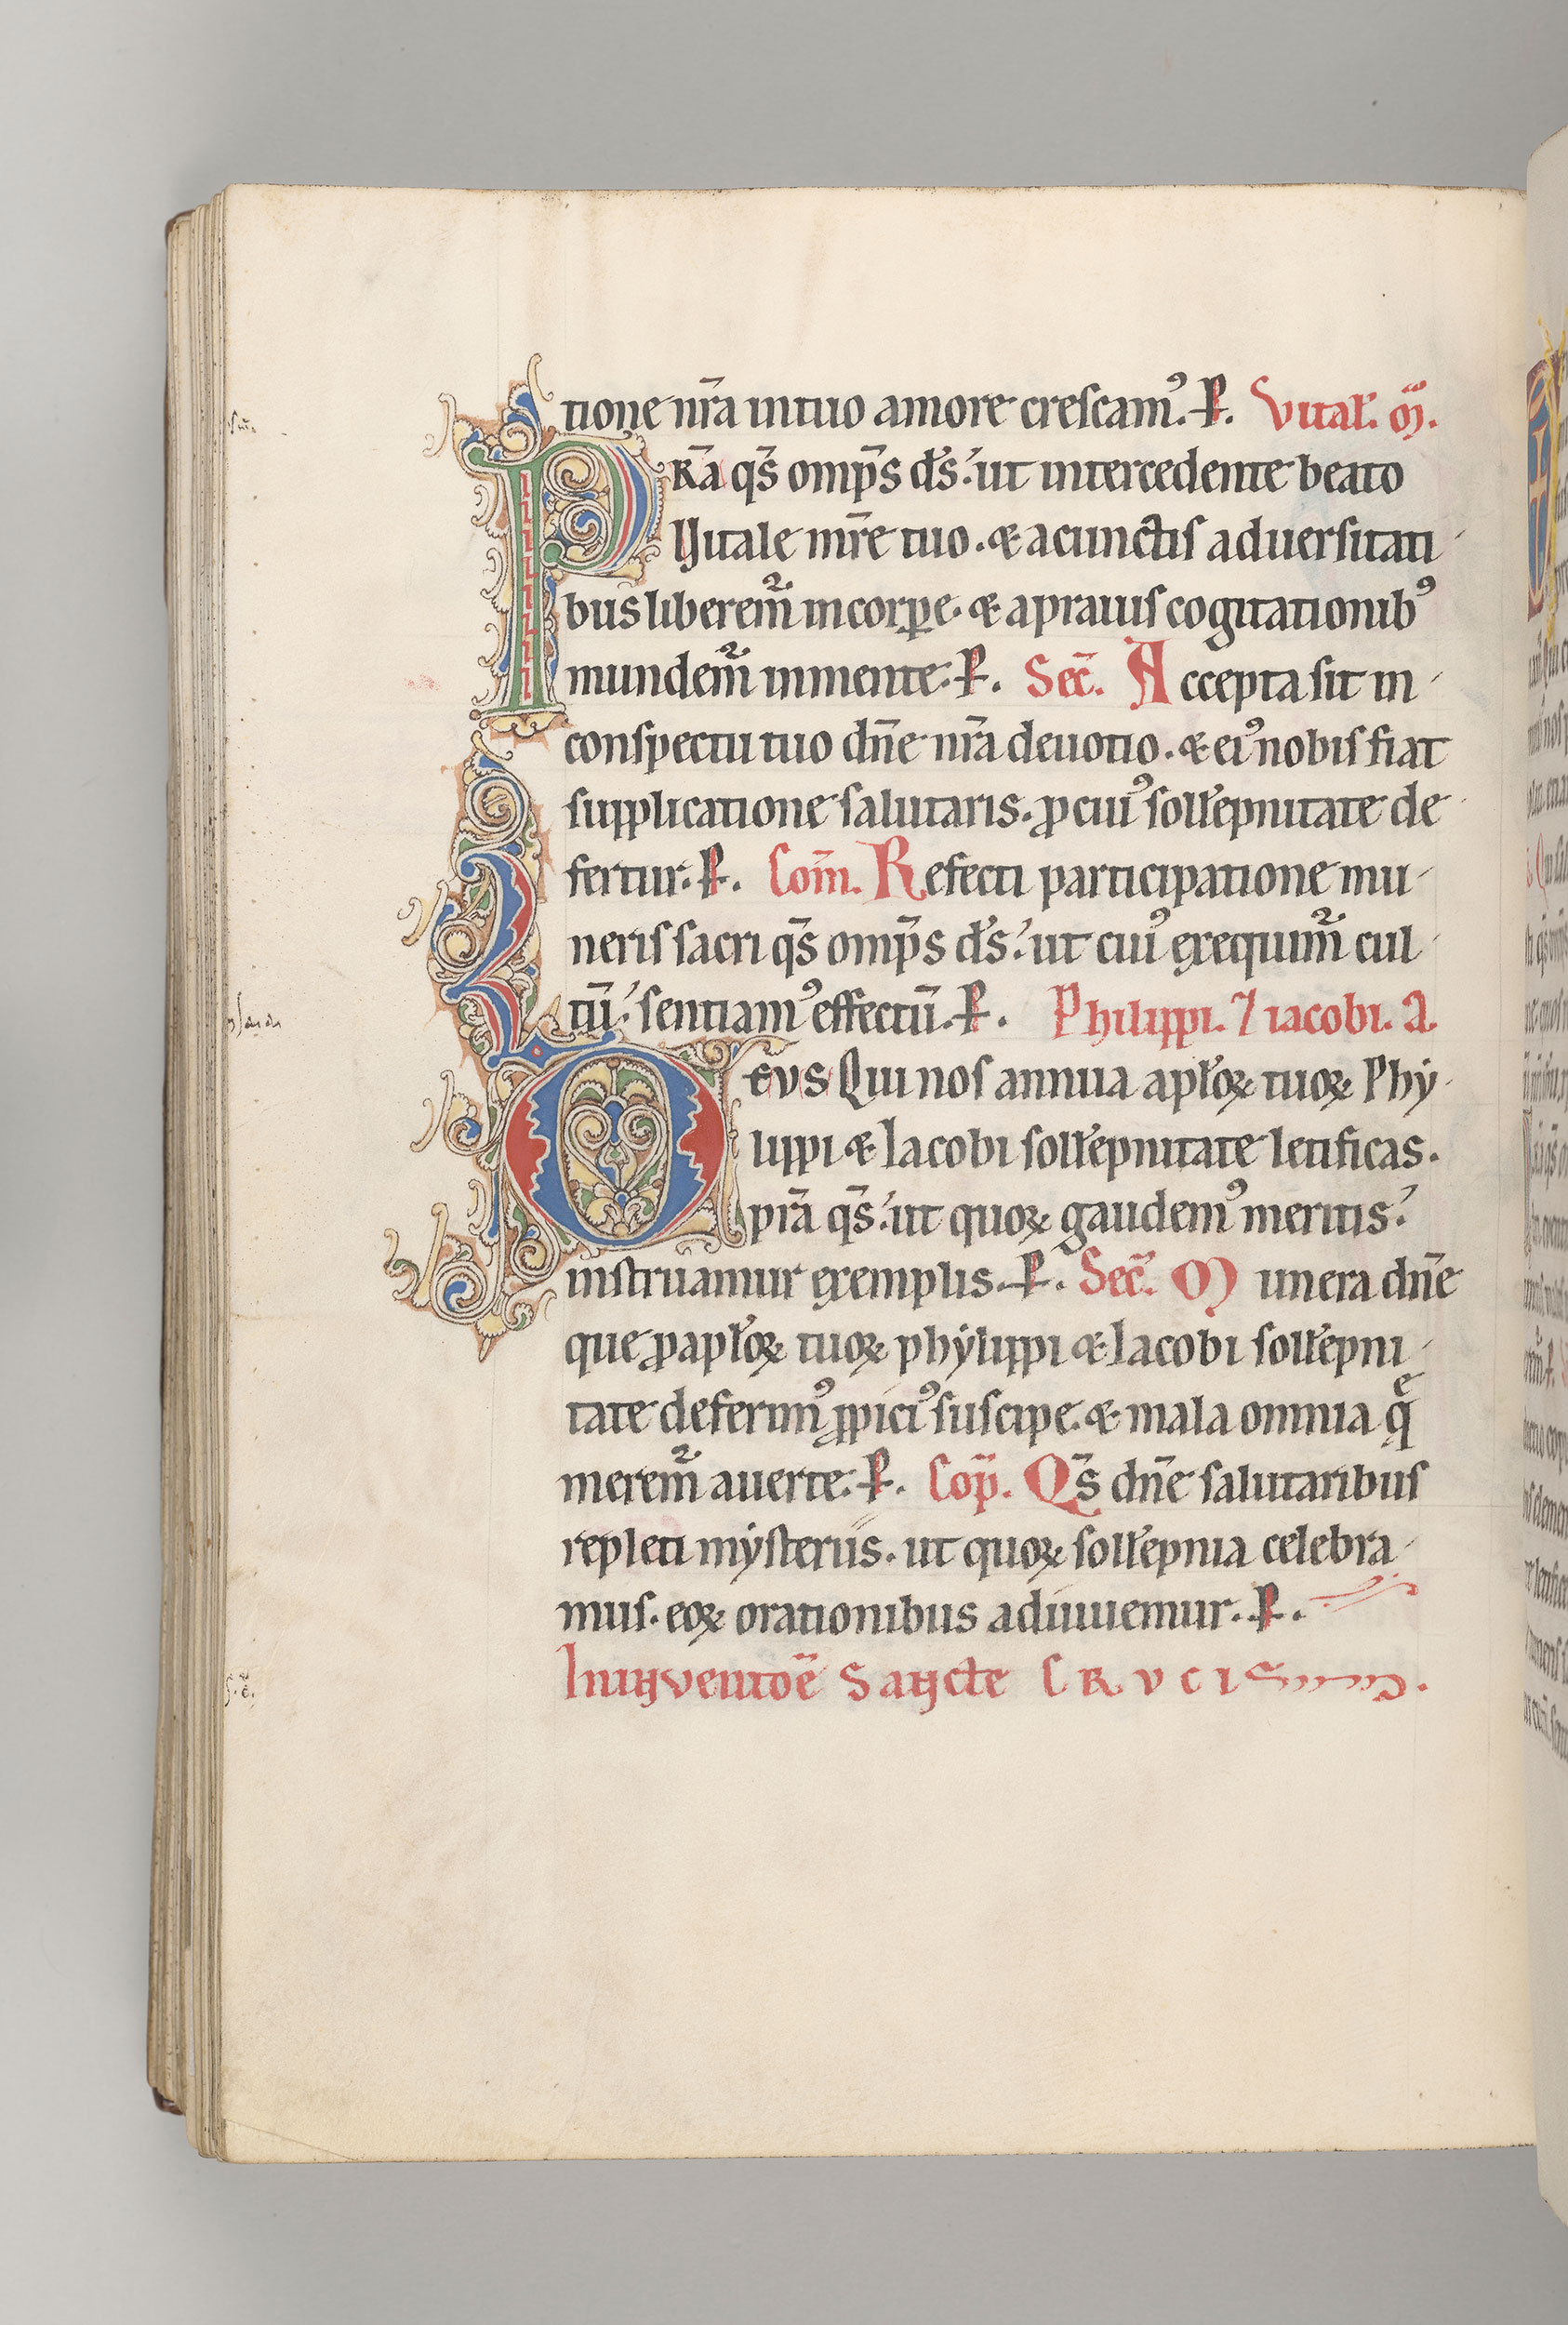 tione nr̄a in tuo amore crescamꝰ. P̵. Vital̓. m̄.
PRA q̄s omp̄s d̄s. ut intercedente beato
Vitale mr̄e tuo. & a cunctis aduersitati
bus liberem᷑ in corpe. & a prauis cogitationibꝰ
mundem᷑ in mente. P̵. Sec̄. Accepta sit in
conspectu tuo dn̄e nr̄a deuotio. & eiꝰ nobis fiat
supplicatione salutaris. ꝓ cuiꝰ soll̓epnitate de
fertur. P̵. Com̄. Refecti participatione mu
neris sacri q̄s omp̄s d̄s. ut cuiꝰ exequim᷑ cul
tū. sentiamꝰ effectū. P̵. Philippi. ⁊ iacobi. a.
DEVS Qui nos annua apl̓oꝝ tuoꝝ Phẏ
lippi & Iacobi soll̓epnitate letificas.
p̄ra q̄s. ut quoꝝ gaudemꝰ meritis.
instruamur exemplis. P̵. Sec̄. Munera dn̄e
que ꝓ apl̓oꝝ tuoꝝ phẏlippi & Iacobi soll̓epni
tate deferimꝰ ꝓpiciꝰ suscipe. & mala omnia qͤ
merem᷑ auerte. P̵. Cop̄. Q̄s dn̄e salutaribus
repleti mẏsteriis. ut quoꝝ soll̓epnia celebra
mus. eoꝝ orationibus adiuuemur. P̵.
In inventōe Sancte CRVCIS